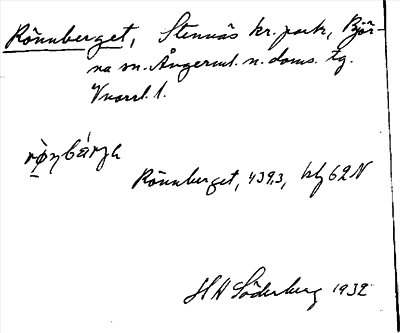 Rönnberget, Stennäs kr. park, Björ-
na sn. Ångerml. n. doms. tg.
Vnorrl. l.
Rönnberget, 439,3, blj 62 N
H H Söderberg 1932